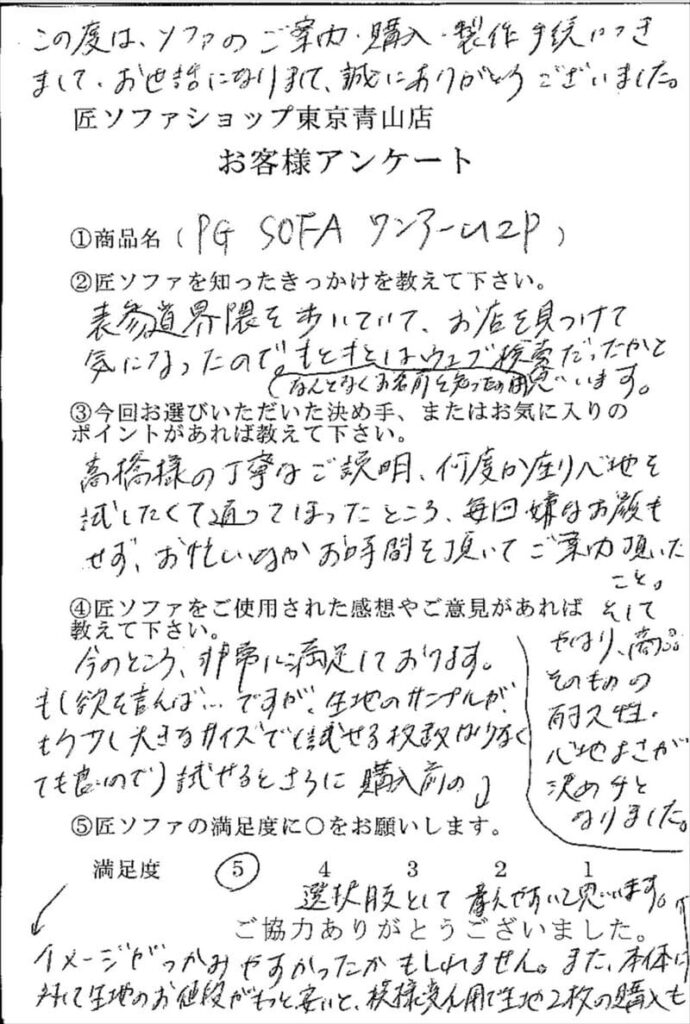 この度は、ソファのご案内・購入・製作手続につき
まして、お世話になりまして、誠にありがとうございました。
匠ソファショップ東京青山店
お客様アンケート
①商品名（PG SOFA ワンアーム2P）
②匠ソファを知ったきっかけを教えて下さい。
表参道界隈を歩いていて、お店を見つけて
気になったので。もともとはウェブ検索だったかと
（なんとなくお名前を知ったの 思います。
③今回お選びいただいた決め手、またはお気に入りの
ポイントがあれば教えて下さい。
高橋様の丁寧なご説明、何度か座り心地を
試したくて通ってしまったところ、毎回嫌なお顔も
せず、お忙しいなかお時間を頂いてご案内頂いた
こと。
そして
やはり、商品
そのものの
耐久性、
心地よさが
決め手と
なりました。
④匠ソファをご使用された感想やご意見があれば
教えて下さい。
今のところ、非常に満足しております。
もし欲を言えば…ですが、生地のサンプルが、
もう少し大きなサイズで（試せる枚数は少なく
ても良いので）試せるとさらに購入前の
⑤匠ソファの満足度に○をお願いします。
満足度 5 4 3 2 1
イメージがつかみやすかったかもしれません。また、本体に
対して生地のお値段がもっと安いと、模様変え用で生地2枚の購入も
選択肢として 選んやすいと思います。
ご協力ありがとうございました。